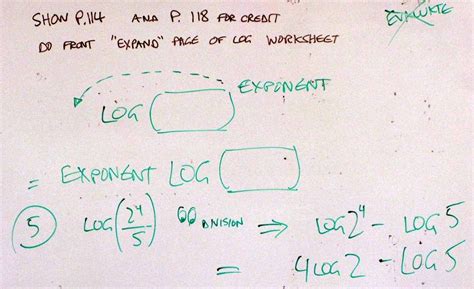 SHOW P.114 AND P. 118 FOR CREDIT
EVALUATE
DO FRONT "EXPAND" PAGE OF LOG WORKSHEET
EXPONENT
LOG
= EXPONENT LOG
5 LOG(2^4/5) DIVISION ⇒ LOG 2^4 - LOG 5
= 4 LOG 2 - LOG 5